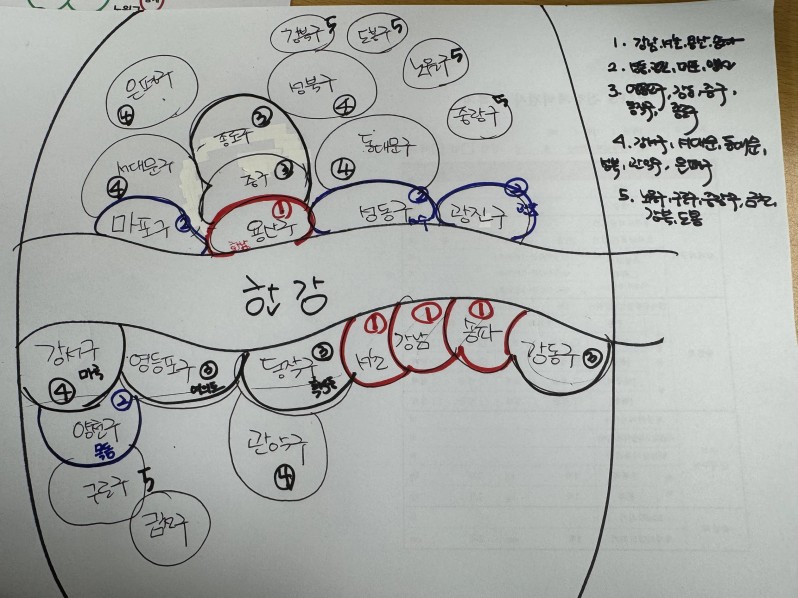 노원구
강북구 5
도봉구 5
노원구 5
은평구
④
성북구
④
중랑구 5
종로구 ③
서대문구
④
중구 ③
동대문구
④
마포구 ②
용산구 ①
한남
성동구 ②
광진구 ②
한강
강서구
④ 마곡
영등포구 ③
여의도
동작구 ③
흑석동
서초 ①
강남 ①
송파 ①
강동구 ③
양천구 ②
목동
관악구
④
구로구 5
금천구
1. 강남, 서초, 용산, 송파
2. 성동, 광진, 마포, 양천
3. 영등포, 강동, 중구,
동작구, 종로
4. 강서구, 서대문, 동대문,
성북, 관악구, 은평구
5. 노원구, 구로구, 중랑구, 금천,
강북, 도봉